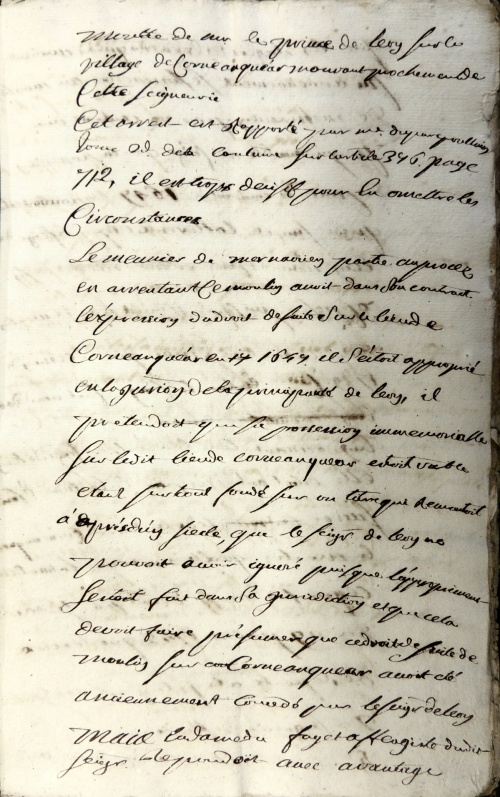 de mr le prince de leon sur le
village de Corneanquear mouvant prochement de
Cette seigneurie
Cet arrest est Rapporté par mr. duparc poullain
tome 2d. de la coutume sur larticle 376 page
712, il est trop decisif pour en omettre les
Circonstances
Le meunier de partie au procez
en arrentant Ce moulin avoit dans son contrat
l'expression du droit de suite sur le lieu de
Corneanquear en 1644 il s'étoit approprié
en la jurisdiction de la principauté de leon, il
pretendoit que sa possession immemorialle
sur ledit lieu de corneanquear estoit valable
etant surtout fondé sur un titre qui Remontoit
à d'un siecle, que le seigr. de leon ne
pouvoit avoir ignoré puisque l'appropriment
s'estoit fait dans sa jurisdiction et que cela
devoit faire présumer que ce droit de suite de
moulin sur Corneanquear avoit été
anciennement concedé par le seigr. de leon
Mais la dame du fayet afferagiste dudit
seigr. Repondoit avec avantage